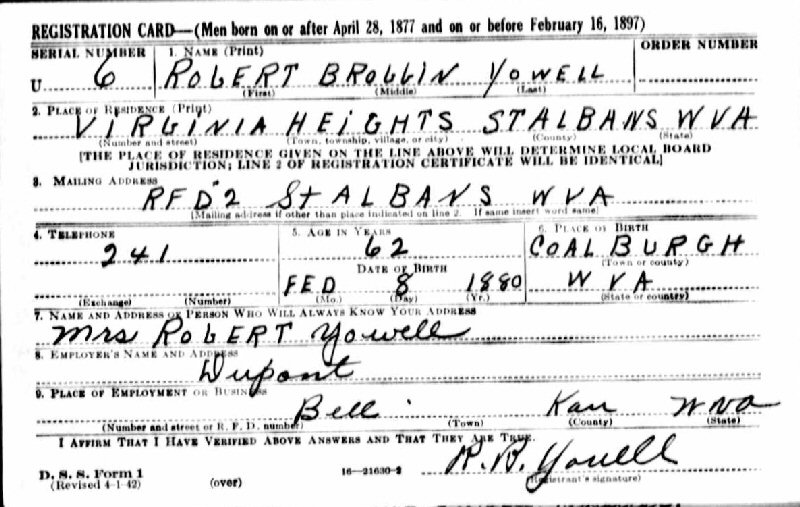 REGISTRATION CARD—(Men born on or after April 28, 1877 and on or before February 16, 1897)
SERIAL NUMBER 1. NAME (Print) ORDER NUMBER
U 6 ROBERT BROLLIN YOWELL
(First) (Middle) (Last)
2. PLACE OF RESIDENCE (Print)
VIRGINIA HEIGHTS STALBANS WVA
(Number and street) (Town, township, village, or city) (County) (State)
[THE PLACE OF RESIDENCE GIVEN ON THE LINE ABOVE WILL DETERMINE LOCAL BOARD
JURISDICTION; LINE 2 OF REGISTRATION CERTIFICATE WILL BE IDENTICAL]
3. MAILING ADDRESS
RFD 2 St ALBANS WVA
(Mailing address if other than place indicated on line 2. If same insert word same)
4. TELEPHONE 5. AGE IN YEARS 6. PLACE OF BIRTH
241 62 COALBURGH
DATE OF BIRTH (Town or county)
FED 8 1880 WVA
(Exchange) (Number) (Mo.) (Day) (Yr.) (State or country)
7. NAME AND ADDRESS OF PERSON WHO WILL ALWAYS KNOW YOUR ADDRESS
Mrs ROBERT Yowell
8. EMPLOYER'S NAME AND ADDRESS
Dupont
9. PLACE OF EMPLOYMENT OR BUSINESS
Bell Kan WVA
(Number and street or R. F. D. number) (Town) (County) (State)
I AFFIRM THAT I HAVE VERIFIED ABOVE ANSWERS AND THAT THEY ARE TRUE.
R. B. Yowell
D. S. S. Form 1 16—21630-2 (Registrant's signature)
(Revised 4-1-42) (over)